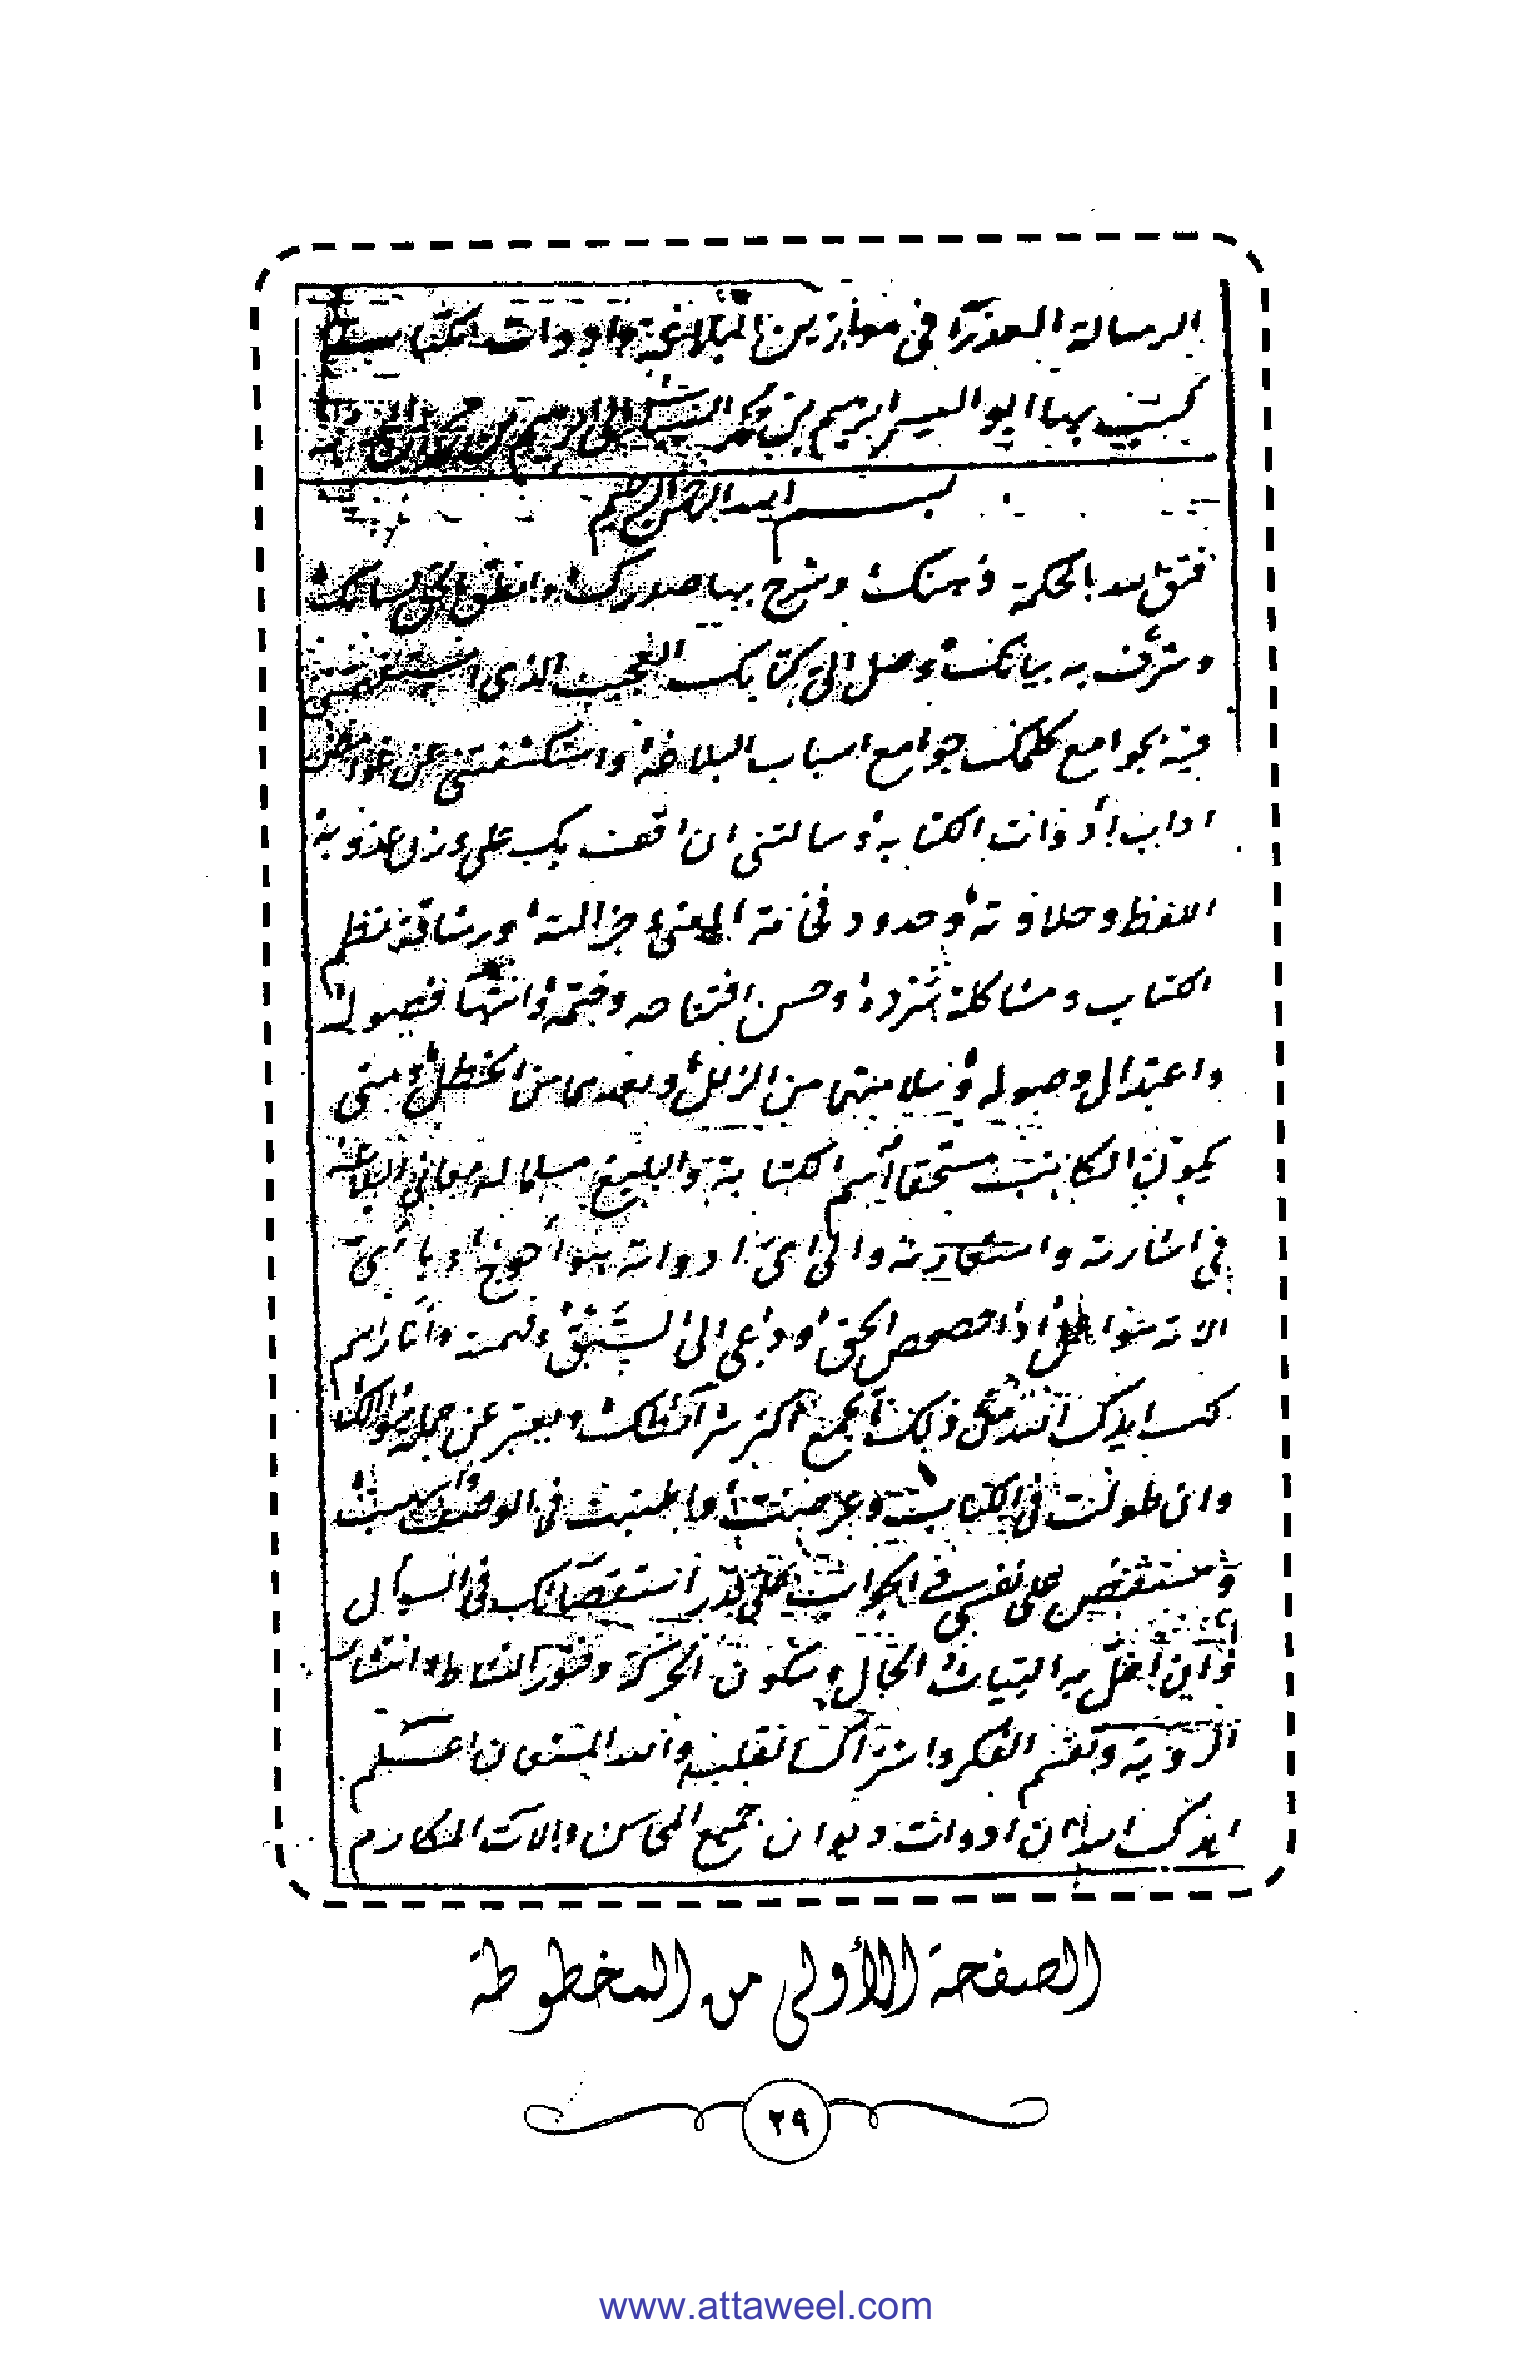 الرسالة العذرآ في موازين البلاغة وادوات الكتابة
كتب بها ابو اليسر ابرهيم بن محمد الشيباني الى ابرهيم بن محمد بن
بسم الله الرحمن الرحيم
فتق الله بالحكمة ذهنك وشرح بها صدرك وانطق بالحق لسانك
وشرف به بيانك وصل الي كتابك العجيب الذي استفهمتني
فيه بجوامع كلمك جوامع اسباب البلاغة واستكشفتني عن غوامض
اداب ادوات الكتابة وسالتني ان اقف بك على وزن عذوبة
اللفظ وحلاوته وحدود فخامة المعنى وجزالته ورشاقة نظم
الكتاب ومشاكلة سرده وحسن افتتاحه وختمه وانتهآ فصوله
واعتدال وصوله وسلامتها من الزلل وبعدها من الخطل ومتى
يكون الكاتب مستحقا اسم الكتابة والبليغ مسلما له معاني البلاغة
في اشارته واستعارته والى اي ادواته هو أحوج وباي
الاته هو اعمل اذا حصحص الحق ودعي الى السبق وفهمته وانا راسم
لك ايدك الله من ذلك ما يجمع اكثر شرآئطك ويعبر عن جملة سؤالك
وان طولت في الكتاب وعرضت واطنبت في الوصف واسهبت
ومستقص على نفسي في الجواب على قدر استقصآئك في السؤال
وان اخل به التياث الحال وسكون الحركة وفتور النشاط وانتشار
الروية وتقسم الفكر واشتراك القلب والله المستعان اعلم
ايدك الله ان ادوات ديوان جميع المحاسن والات المكارم
الصفحة الأولى من المخطوطة
٢٩
www.attaweel.com